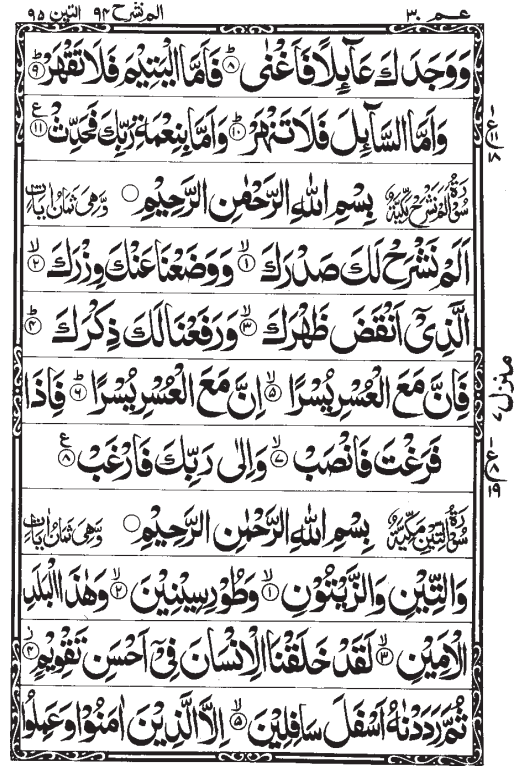 عـم ٣٠ الم نشرح ٩٤ التين ٩٥
وَوَجَدَكَ عَآئِلًا فَاَغْنٰى ؕ‏﴿۸﴾ فَاَمَّا الْيَتِيْمَ فَلَا تَقْهَرْ ؕ‏﴿۹﴾
وَاَمَّا السَّآئِلَ فَلَا تَنْهَرْ ؕ‏﴿۱۰﴾ وَاَمَّا بِنِعْمَةِ رَبِّكَ فَحَدِّثْ ﴿۱۱﴾ ع
سُوْرَةُ اَلَمْ نَشْرَحْ مَكِّيَّةٌ بِسْمِ اللّٰهِ الرَّحْمٰنِ الرَّحِيْمِ ○ وَّهِىَ ثَمَانُ اٰيَاتٍ
اَلَمْ نَشْرَحْ لَكَ صَدْرَكَ ۙ‏﴿۱﴾ وَوَضَعْنَا عَنْكَ وِزْرَكَ ۙ‏﴿۲﴾
الَّذِىْۤ اَنْقَضَ ظَهْرَكَ ۙ‏﴿۳﴾ وَرَفَعْنَا لَكَ ذِكْرَكَ ؕ‏﴿۴﴾
فَاِنَّ مَعَ الْعُسْرِ يُسْرًا ۙ‏﴿۵﴾ اِنَّ مَعَ الْعُسْرِ يُسْرًا ؕ‏﴿۶﴾ فَاِذَا
فَرَغْتَ فَانْصَبْ ۙ‏﴿۷﴾ وَاِلٰى رَبِّكَ فَارْغَبْ ﴿۸﴾ ع
سُوْرَةُ التِّيْنِ مَكِّيَّةٌ بِسْمِ اللّٰهِ الرَّحْمٰنِ الرَّحِيْمِ ○ وَّهِىَ ثَمَانُ اٰيَاتٍ
وَالتِّيْنِ وَالزَّيْتُوْنِ ۙ‏﴿۱﴾ وَطُوْرِ سِيْنِيْنَ ۙ‏﴿۲﴾ وَهٰذَا الْبَلَدِ
الْاَمِيْنِ ۙ‏﴿۳﴾ لَقَدْ خَلَقْنَا الْاِنْسَانَ فِىْۤ اَحْسَنِ تَقْوِيْمٍ ‏﴿۴﴾ ز
ثُمَّ رَدَدْنٰهُ اَسْفَلَ سَافِلِيْنَ ۙ‏﴿۵﴾ اِلَّا الَّذِيْنَ اٰمَنُوْا وَعَمِلُوا
ع ۱۱ ۱۸
منزل ۷
ع ۸ ۱۹